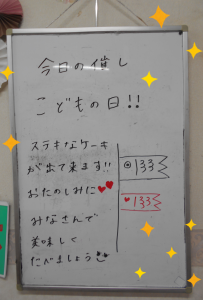 今日の催し
こどもの日!!
ステキなケーキ
が出て来ます!!
おたのしみに
みなさんで
美味しく
たべましょう